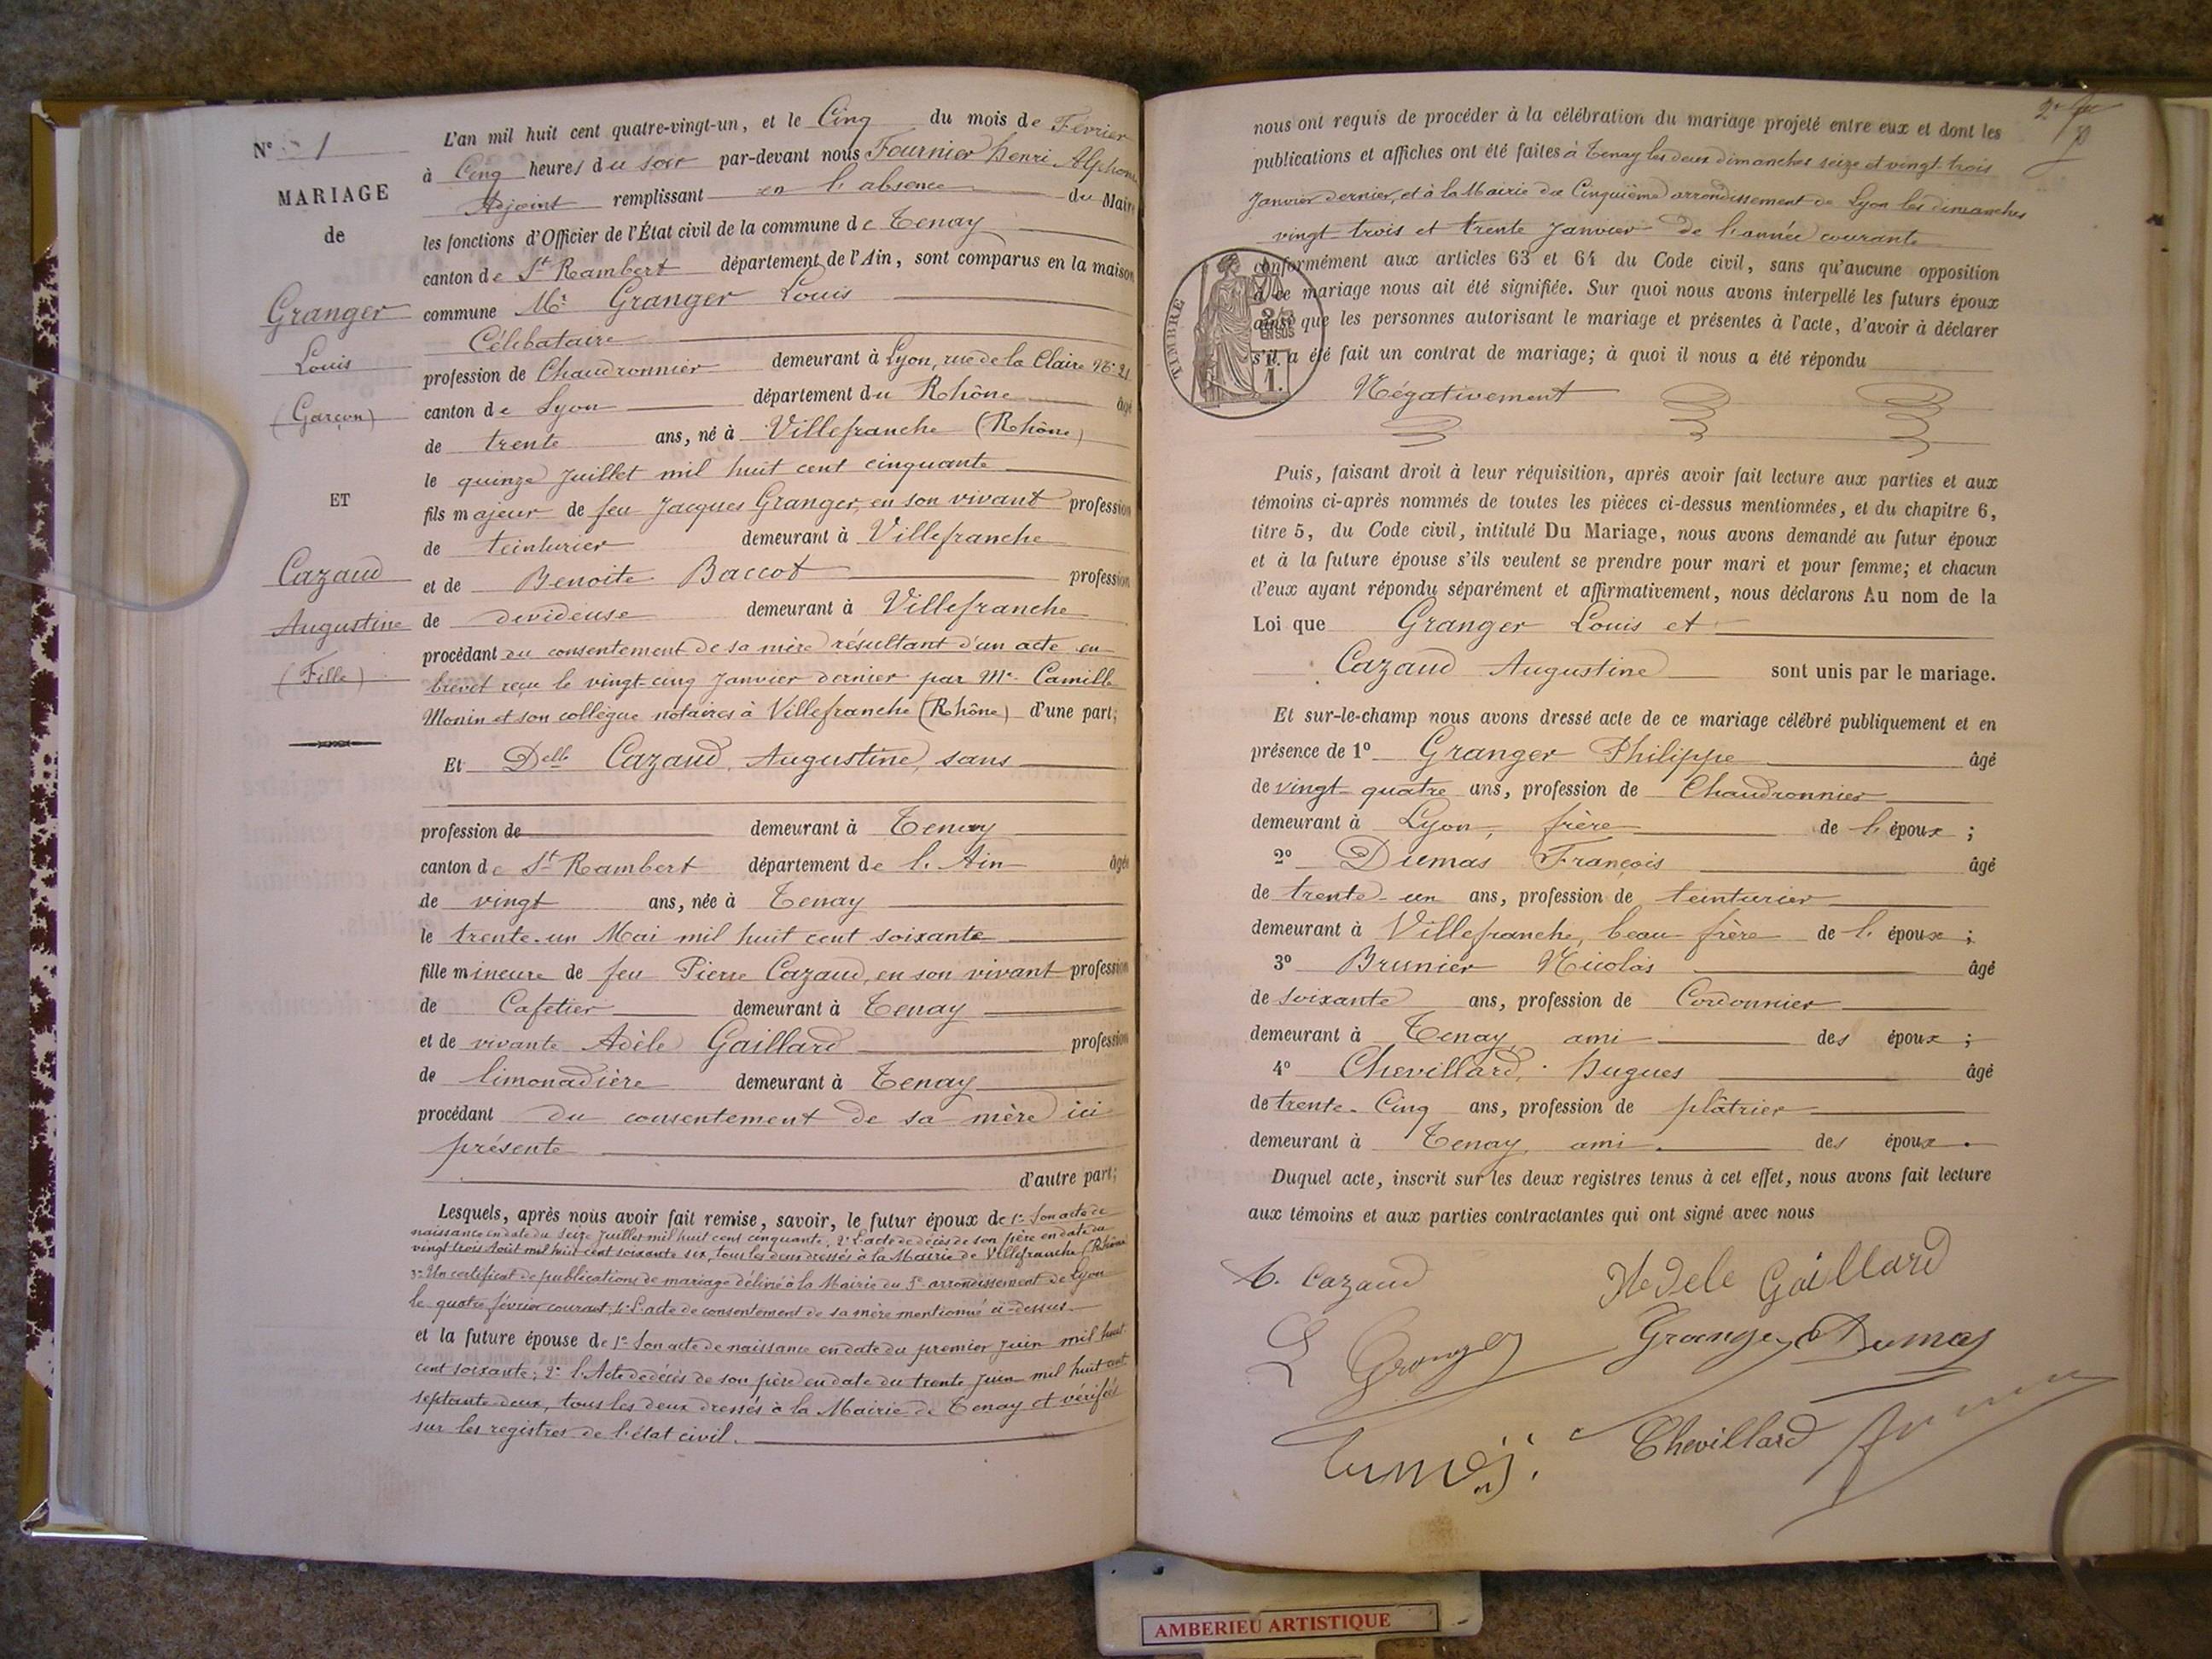 N° 1
MARIAGE
de
Granger
Louis
(Garçon)
ET
Cazaud
Augustine
(Fille)
L'an mil huit cent quatre-vingt-un, et le Cinq du mois de Février
à Cinq heures du soir par-devant nous Fournier henri Alphonse
Adjoint remplissant en l'absence du Maire
les fonctions d'Officier de l'État civil de la commune de Tenay
canton de St Rambert département de l'Ain, sont comparus en la maison
commune Mr Granger Louis
Célibataire
profession de Chaudronnier demeurant à Lyon, rue de la Claire N° 21
canton de Lyon département du Rhône âgé
de trente ans, né à Villefranche (Rhône)
le quinze Juillet mil huit cent cinquante
fils majeur de feu Jacques Granger, en son vivant profession
de teinturier demeurant à Villefranche
et de Benoite Baccot profession
de devideuse demeurant à Villefranche
procédant du consentement de sa mère résultant d'un acte en
brevet reçu le vingt-cinq Janvier dernier par Me Camille
Monin et son collègue notaires à Villefranche (Rhône) d'une part;
Et Delle Cazaud, Augustine, sans
profession de demeurant à Tenay
canton de St Rambert département de l'Ain âgée
de vingt ans, née à Tenay
le trente-un Mai mil huit cent soixante
fille mineure de feu Pierre Cazaud, en son vivant profession
de Cafetier demeurant à Tenay
et de vivante Adèle Gaillard profession
de limonadière demeurant à Tenay
procédant du consentement de sa mère ici
présente
d'autre part;
Lesquels, après nous avoir fait remise, savoir, le futur époux de 1° Son acte de
naissance en date du seize Juillet mil huit cent cinquante; 2° L'acte de décès de son père en date du
vingt trois Août mil huit cent soixante six, tous les deux dressés à la Mairie de Villefranche (Rhône)
3° Un certificat de publications de mariage délivré à la Mairie du 5e arrondissement de Lyon
le quatre février courant; 4° L'acte de consentement de sa mère mentionné ci-dessus
et la future épouse de 1° Son acte de naissance en date du premier Juin mil huit
cent soixante; 2° l'Acte de décès de son père en date du trente Juin mil huit cent
septante-deux, tous les deux dressés à la Mairie de Tenay et vérifiés
sur les registres de l'état civil.
2e
nous ont requis de procéder à la célébration du mariage projeté entre eux et dont les
publications et affiches ont été faites à Tenay les deux dimanches seize et vingt-trois
Janvier dernier, et à la Mairie du Cinquième arrondissement de Lyon les dimanches
vingt trois et trente Janvier de l'année courante
conformément aux articles 63 et 64 du Code civil, sans qu'aucune opposition
à ce mariage nous ait été signifiée. Sur quoi nous avons interpellé les futurs époux
ainsi que les personnes autorisant le mariage et présentes à l'acte, d'avoir à déclarer
s'il a été fait un contrat de mariage; à quoi il nous a été répondu
Négativement
TIMBRE
2/5
EN SUS
1.
Puis, faisant droit à leur réquisition, après avoir fait lecture aux parties et aux
témoins ci-après nommés de toutes les pièces ci-dessus mentionnées, et du chapitre 6,
titre 5, du Code civil, intitulé Du Mariage, nous avons demandé au futur époux
et à la future épouse s'ils veulent se prendre pour mari et pour femme; et chacun
d'eux ayant répondu séparément et affirmativement, nous déclarons Au nom de la
Loi que Granger Louis et
Cazaud Augustine sont unis par le mariage.
Et sur-le-champ nous avons dressé acte de ce mariage célébré publiquement et en
présence de 1° Granger Philippe âgé
de vingt-quatre ans, profession de Chaudronnier
demeurant à Lyon, frère de l'époux;
2° Dumas François âgé
de trente-un ans, profession de teinturier
demeurant à Villefranche, beau-frère de l'époux;
3° Brunier Nicolas âgé
de soixante ans, profession de Cordonnier
demeurant à Tenay, ami des époux;
4° Chevillard, Hugues âgé
de trente-Cinq ans, profession de plâtrier
demeurant à Tenay, ami des époux.
Duquel acte, inscrit sur les deux registres tenus à cet effet, nous avons fait lecture
aux témoins et aux parties contractantes qui ont signé avec nous
A. Cazaud Adele Gaillard
L Granger Granger Dumas
Chevillard
AMBERIEU ARTISTIQUE